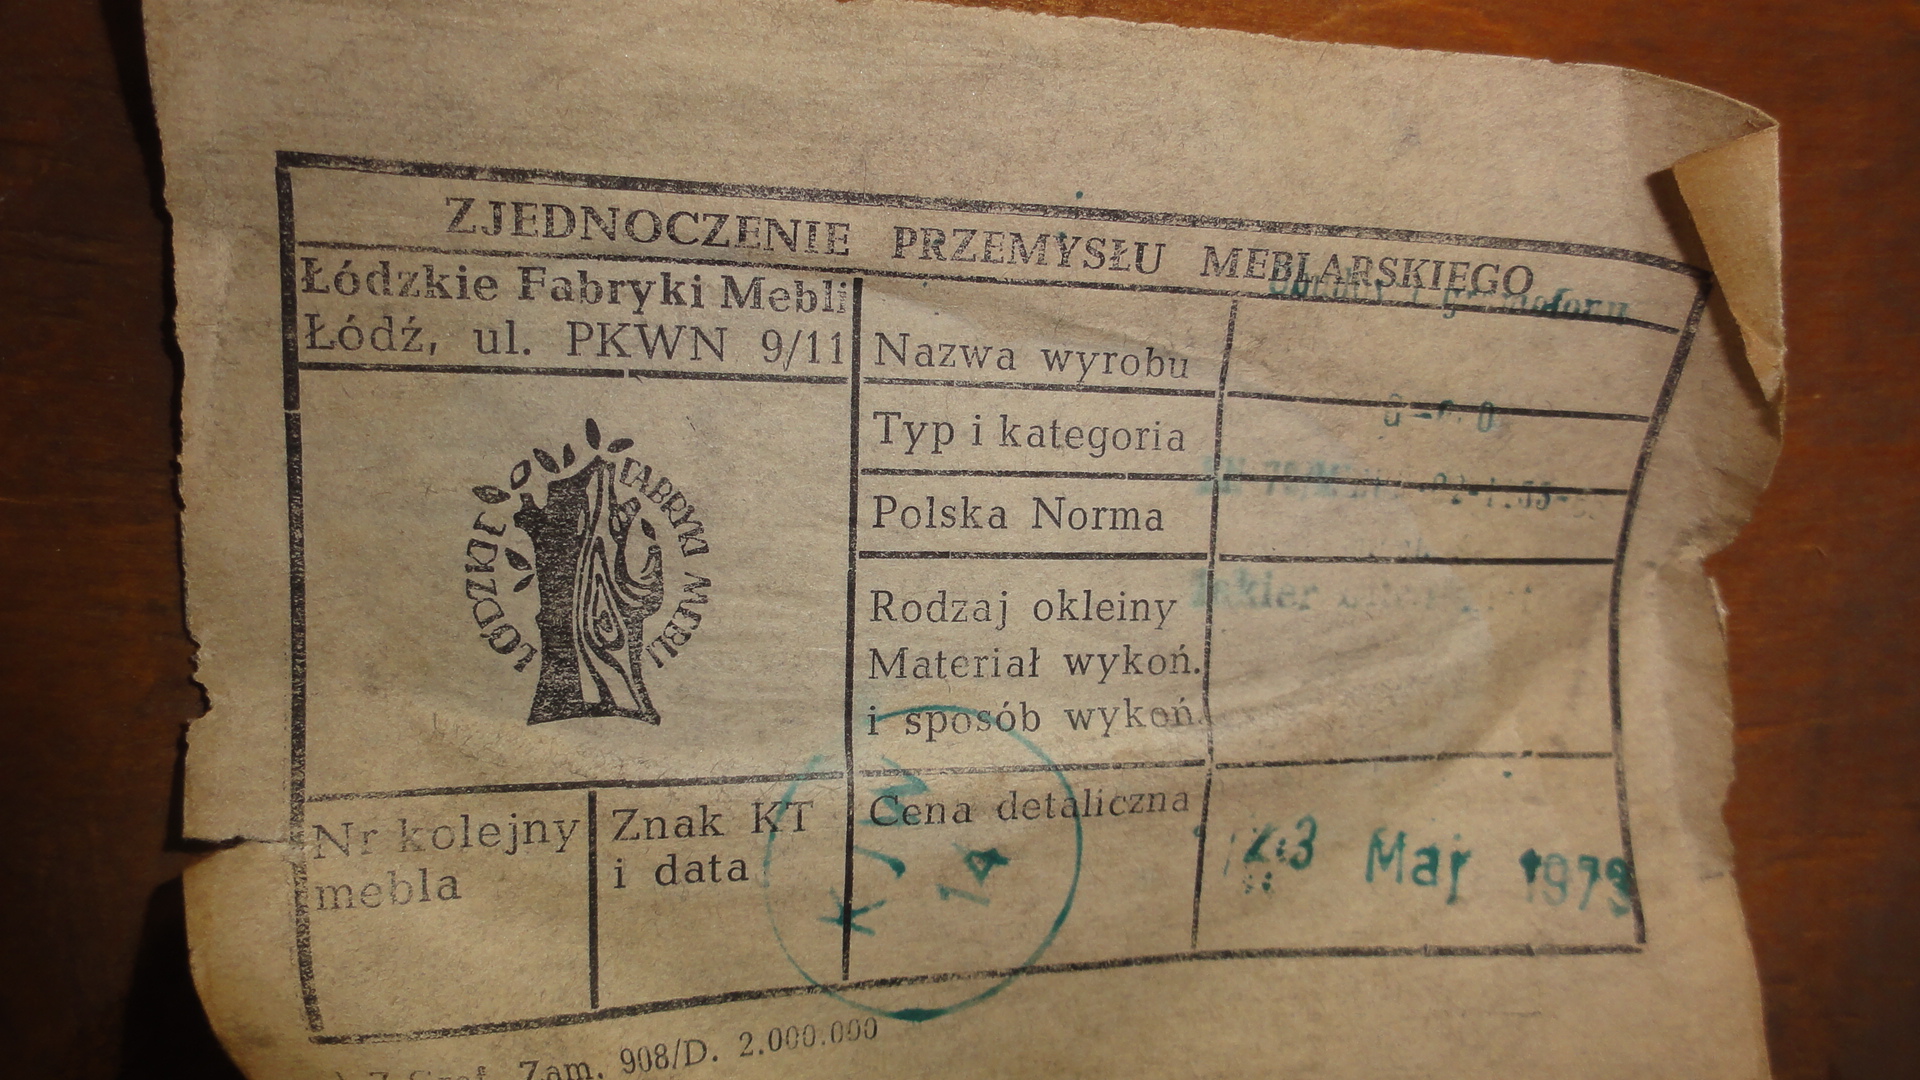 ZJEDNOCZENIE PRZEMYSŁU MEBLARSKIEGO
Łódzkie Fabryki Mebli
Łódź, ul. PKWN 9/11
ŁÓDZKIE FABRYKI MEBLI
Nazwa wyrobu
gramofonu
Typ i kategoria
Polska Norma
Rodzaj okleiny
Lakier
Materiał wykoń.
i sposób wykoń.
Nr kolejny
mebla
Znak KT
i data
KJW
14
Cena detaliczna
23 Maj 1973
Zam. 908/D. 2.000.000